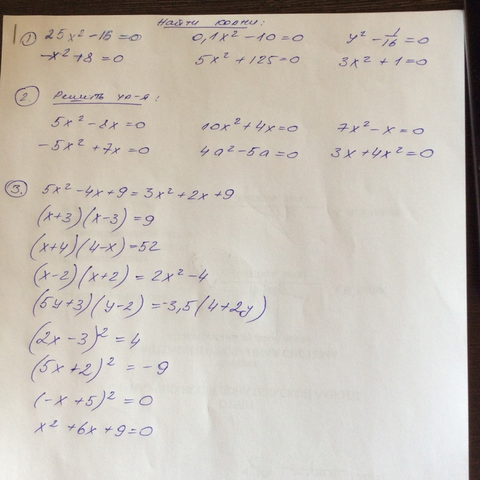 Найти корни:
① 25x² - 16 = 0 0,1x² - 10 = 0 y² - 1/16 = 0
-x² + 8 = 0 5x² + 125 = 0 3x² + 1 = 0
② Решить ур-я:
5x² - 8x = 0 10x² + 4x = 0 7x² - x = 0
-5x² + 7x = 0 4a² - 5a = 0 3x + 4x² = 0
③. 5x² - 4x + 9 = 3x² + 2x + 9
(x+3)(x-3) = 9
(x+4)(4-x) = 52
(x-2)(x+2) = 2x² - 4
(5y+3)(y-2) = -3,5(4+2y)
(2x - 3)² = 4
(5x + 2)² = -9
(-x + 5)² = 0
x² + 6x + 9 = 0